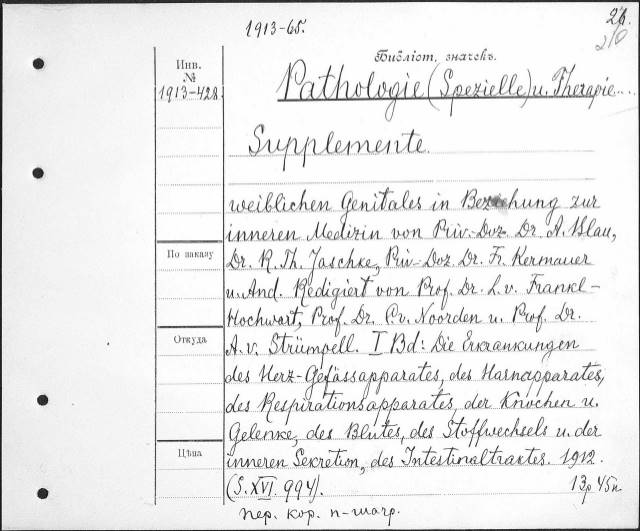 1913-65.
26.
210
Инв.
№
1913-428.
Библіот. значекъ.
Pathologie (Spezielle) u. Therapie....
Supplemente.
weiblichen Genitales in Beziehung zur
inneren Medizin von Priv.-Doz. Dr. A. Blau,
По заказу
Dr. R. Th. Jaschke, Priv-Doz. Dr. Fr. Kermauer
u. And. Redigiert von Prof. Dr. L. v. Frankl-
Hochwart, Prof. Dr. C. v. Noorden u. Prof. Dr.
Откуда
A. v. Strümpell. I Bd: Die Erkrankungen
des Herz-Gefässapparates, des Harnapparates,
des Respirationsapparates, der Knochen u.
Gelenke, des Blutes, des Stoffwechsels u. der
Цѣна
inneren Sekretion, des Intestinaltraktes. 1912.
(S. XVI. 994).
13р 45к
пер. кор. п-шагр.